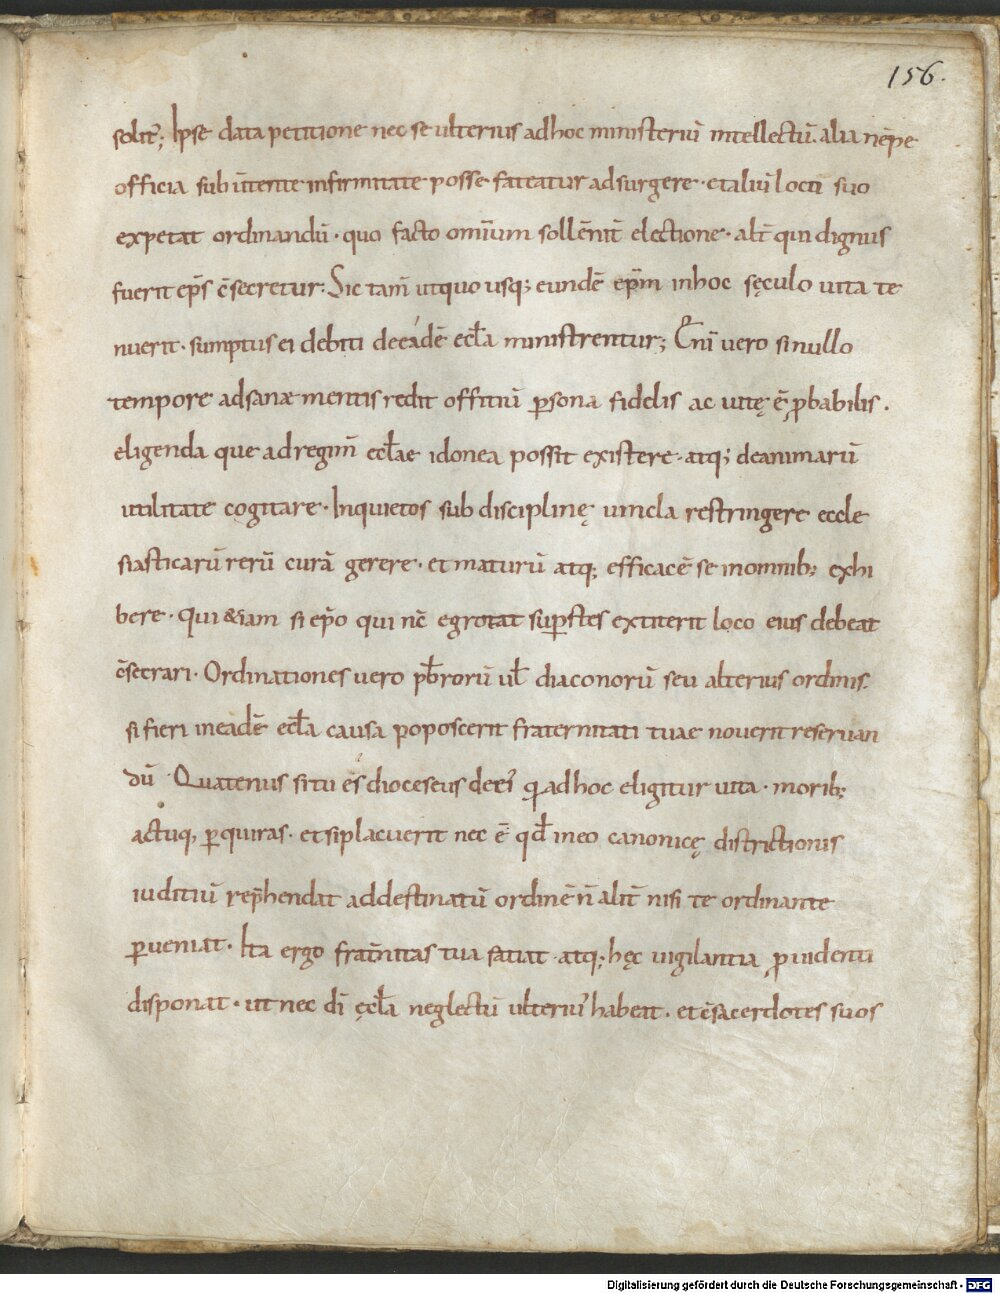 156.
solit᷒; Ipse data petitione nec se ulterius adhoc ministeriū intellectū. alia nēpe
officia subūtente infirmitate posse fateatur adsurgere · etaliū loco suo
expetat ordinandū · quo facto omīum sollēnit̄ electione · alt̄ qui dignus
fuerit ep̄s c̄secretur · Sic tam̄ utquo usq; eundē ep̄m inhoc sęculo uita te
nuerit · sumptus ei debiti deeádē eccl̄a ministrentur; Qm̄ vero sinullo
tempore adsanæ mentis redit offitiū ꝑsona fidelis ac uitę ē ꝓbabilis .
eligenda que adregim̄ eccl̄ae idonea possit existere · atq; deanimarū
utilitate cogitare · Inquietos sub disciplinę uincla restringere eccle
siasticarū rerū curā gerere · et maturū atq; efficacē se inomnib; exhi
bere · qui &iam si ep̄o qui nc̄ egrotat suꝑstes extiterit loco eius debeat
c̄secrari · Ordinationes uero p̄brorū ul̄ diaconorū seu alterius ordinis.
si fieri ineadē eccl̄a causa poposcerit fraternitati tuae nouerit reseruan
dū · Quatenus situ ēs dioceseus dēēi q̄ adhoc eligitur uita · morib;
actuq; ꝑquiras · etsiplacuerit nec ē qd̄ ineo canonicę districtionis
iuditiū rep̄hendat addestinatū ordinē n̄ alit̄ nisi te ordinante
ꝑueniat · Ita ergo frat̄nitas tua fatiat · atq; hęc uigilantia ꝓuidenti
disponat · ut nec dī ęccl̄a neglectū ulteriu᷒ habeat · et c̄sacerdotes suos
Digitalisierung gefördert durch die Deutsche Forschungsgemeinschaft - DFG